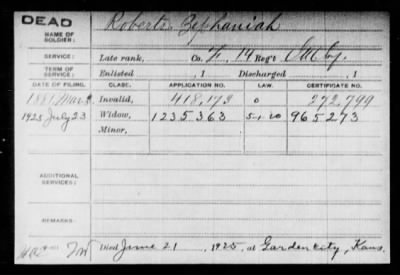 DEAD
NAME OF SOLDIER: Roberts Zephaniah
SERVICE: Late rank, Co. F, 14 Reg't Ill Cav
TERM OF SERVICE: Enlisted , 1 Discharged , 1
DATE OF FILING. CLASS. APPLICATION NO. LAW. CERTIFICATE NO.
1881 Mar Invalid, 418,173 o 272,799
1925 July 23 Widow, 1235363 5-1-20 965273
Minor,
ADDITIONAL SERVICES:
REMARKS:
Died June 21, 1925, at Garden City, Kans.